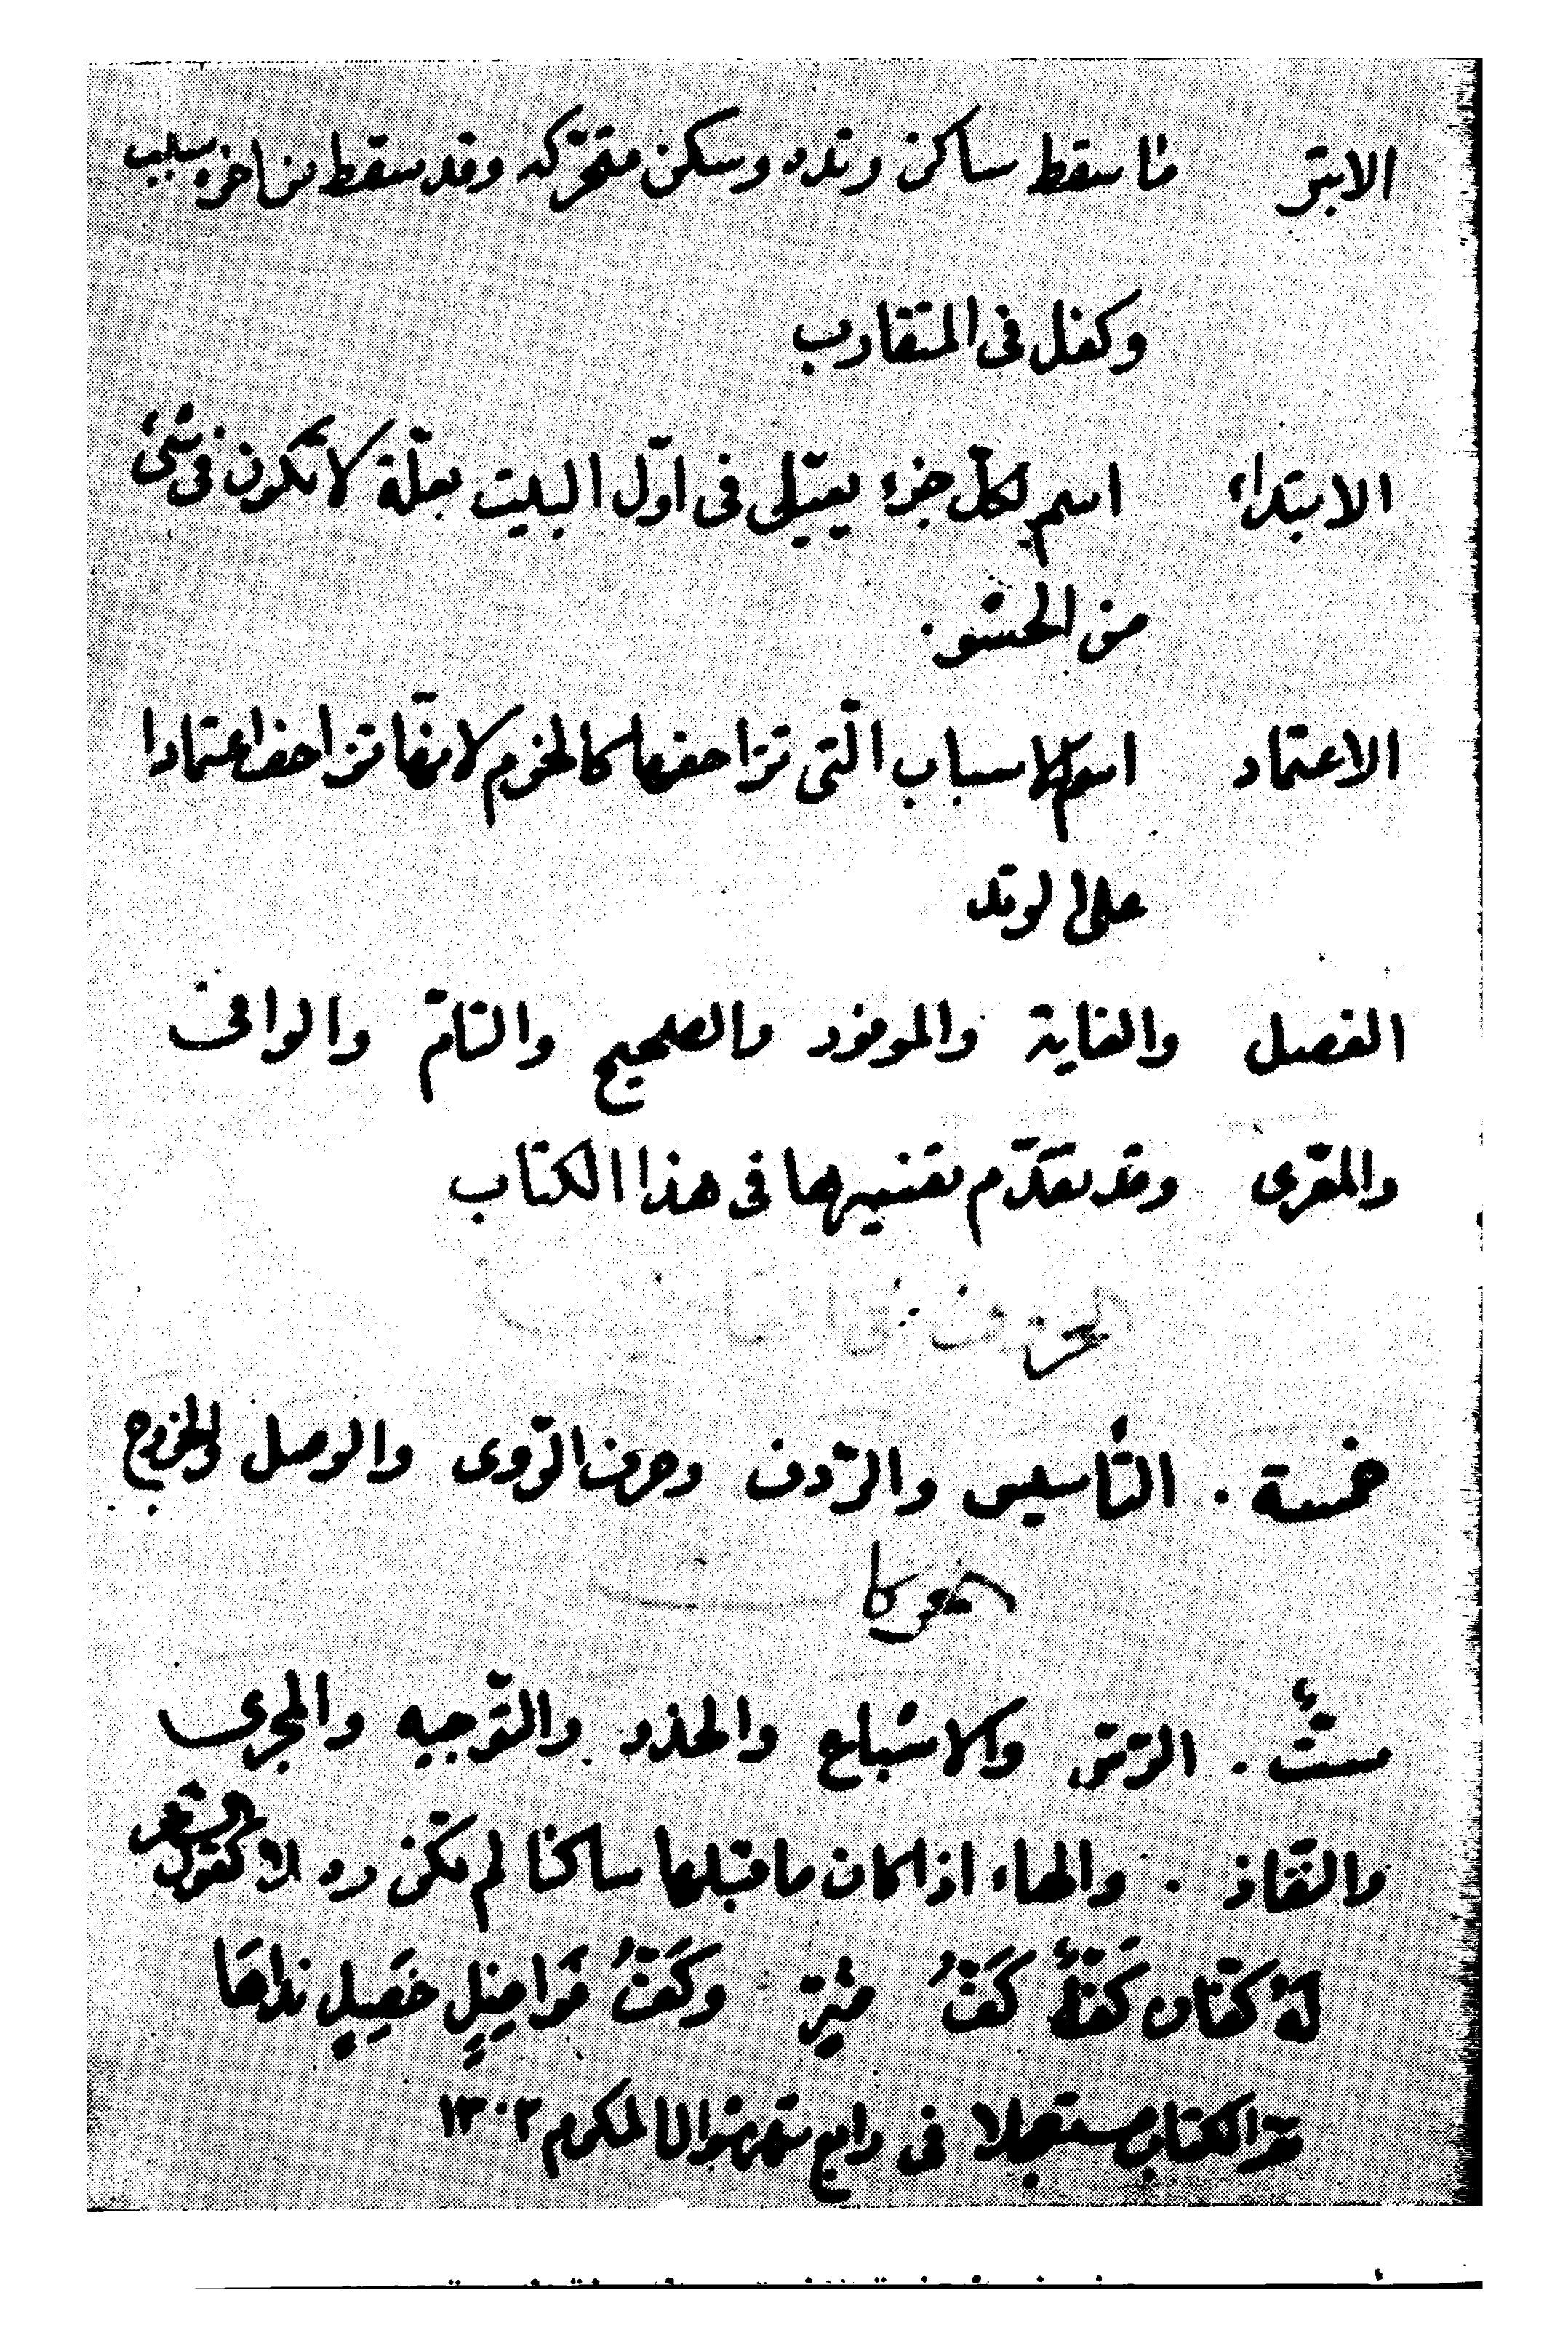 الابتر ما سقط ساكن وتده وسكن متحركه وقد سقط من اخره سبب
وكفل فى المتقارب
الابتداء اسم لكلّ جزء يعتلى فى اوّل البيت بعلّة لا تكون فى شىء
من الحشو .
الاعتماد اسم للاسباب الّتى تزاحفها كالخرم لانّها تزاحف اعتمادا
على الوتد
الفصل والغاية والموفور والصحيح والتامّ والوافى
والمعّرى وقد تقدّم تفسيرها فى هذا الكتاب
الحروف فى
خمسة . التّأسيس والرّدف وحرف الرّوى والوصل والخروج
الحركات
ستّ . الرّسّ والاشباع والحذو والتّوجيه والمجرى
والنّفاذ . والهاء اذا كان ما قبلها ساكنا لم تكن الا كقول الشاعر
وكَفُّ فَواضِلٍ خَضِلٍ نداهَا
تم الكتاب مستعجلا فى رابع شهر شوال المكرم ١٣٠٢